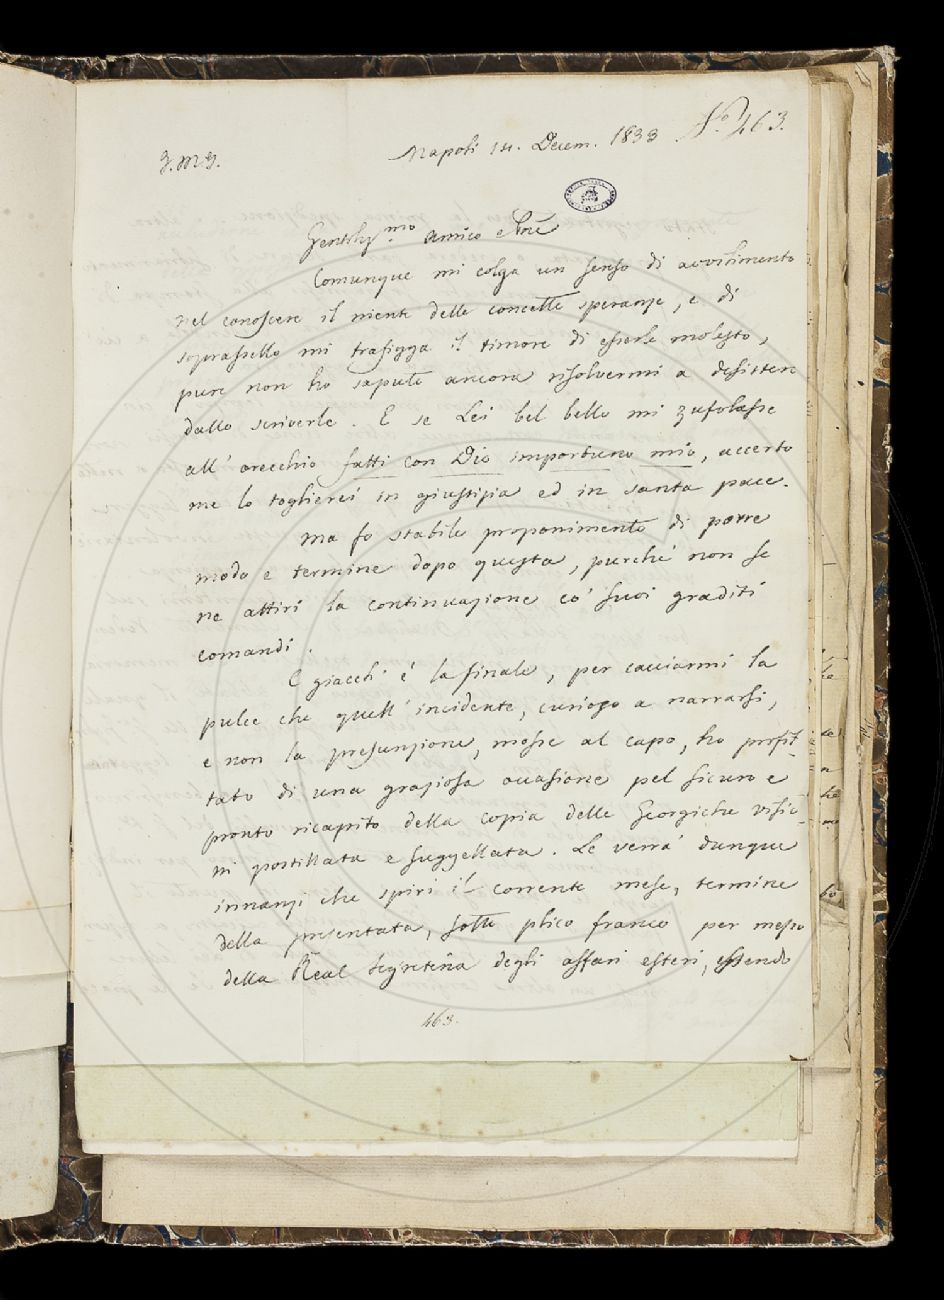 No. 463.
J.M.J.
Napoli 14. Decem. 1833
Gentiliss.mo amico e
Comunque mi colga un senso di avvilimento
nel conoscere il niente delle concette speranze, e di
soprassello mi trafigga il timore di esserle molesto,
pure non ho saputo ancora risolvermi a desistere
dallo scriverle. E se Lei bel bello mi zufolasse
all' orecchio fatti con Dio importuno mio, accerto
me lo toglierei in giustizia ed in santa pace.
Ma fo stabile proponimento di porre
modo e termine dopo questa, purché non se
ne attiri la continuazione co' suoi graditi
comandi.
E giacché é la finale, per cacciarmi la
pulce che quell' incidente, curioso a narrarsi,
e non la presunzione, mosse al capo, ho profit-
tato di una graziosa occasione pel sicuro e
pronto ricapito della copia delle Georgiche
postillata e suggellata. Le verrà dunque
innanzi che spiri il corrente mese, termine
della presentata, sotto plico franco per mezzo
della Real Segreteria degli affari esteri, essendo
463.